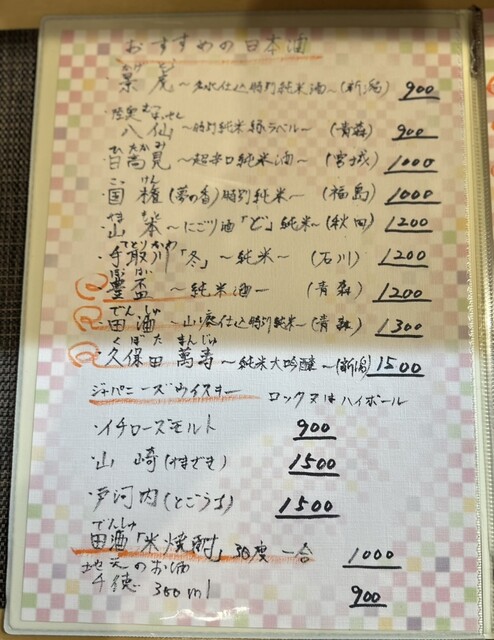 おすすめの日本酒
かげ とら
・景虎 〜名水仕込特別純米酒〜 (新潟) 900
陸奥 むつ はっせん
・八仙 〜特別純米緑ラベル〜 (青森) 900
ひたかみ
・日高見 〜超辛口純米酒〜 (宮城) 1000
こっ けん
・国権 (夢の香) 特別純米〜 (福島) 1000
やま もと
・山本 〜にごり酒「ど」純米〜 (秋田) 1200
てどりがわ
・手取川「冬」 〜純米〜 (石川) 1200
ほうはい
豊盃 〜純米酒〜 (青森) 1200
でん しゅ
田酒 〜山廃仕込特別純米〜 (青森) 1300
くぼた まんじゅ
久保田 萬寿 〜純米大吟醸〜 (新潟) 1500
ジャパニーズウイスキー ロック又はハイボール
・イチローズモルト 900
・山崎 (やまざき) 1500
・戸河内 (とごうち) 1500
でんしゅ
田酒「米焼酎」 30度 一合 1000
地元のお酒
千徳 300ml 900